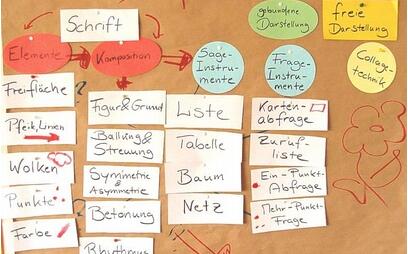 Schrift
gebundene
Darstellung
freie
Darstellung
Elemente
Komposition
Sage-
Instru-
mente
Frage-
Instru-
mente
Collage-
technik
Freifläche
Pfeile, Linien
Wolken
Punkte
Farbe
Figur & Grund
Ballung &
Streuung
Symmetrie
& Asymmetrie
Betonung
Rhythmus
Liste
Tabelle
Baum
Netz
Karten-
abfrage
Zuruf-
liste
Ein-Punkt-
Abfrage
Mehr-Punkt-
Frage